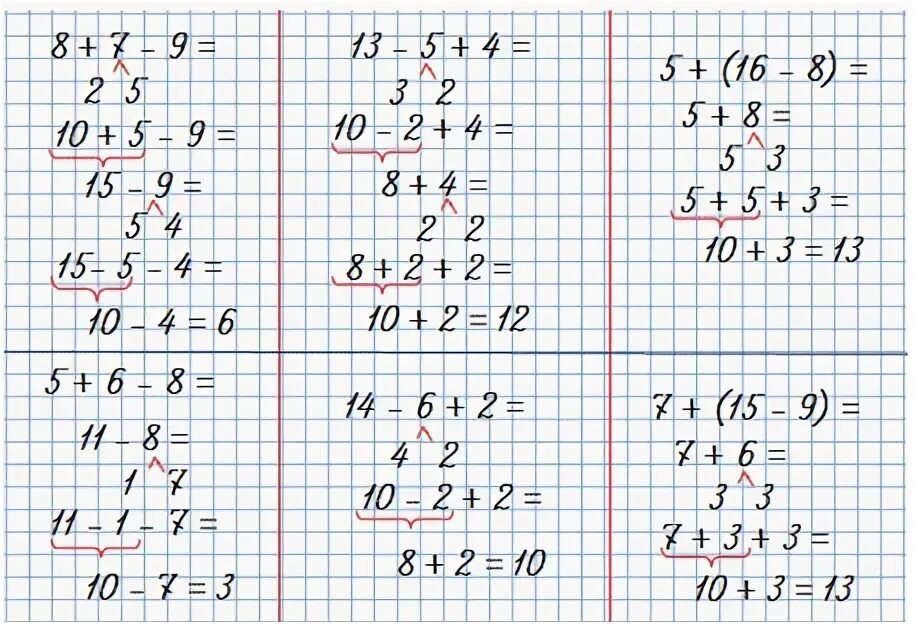 8 + 7 - 9 =
2 5
10 + 5 - 9 =
15 - 9 =
5 4
15 - 5 - 4 =
10 - 4 = 6
13 - 5 + 4 =
3 2
10 - 2 + 4 =
8 + 4 =
2 2
8 + 2 + 2 =
10 + 2 = 12
5 + (16 - 8) =
5 + 8 =
5 3
5 + 5 + 3 =
10 + 3 = 13
5 + 6 - 8 =
11 - 8 =
1 7
11 - 1 - 7 =
10 - 7 = 3
14 - 6 + 2 =
4 2
10 - 2 + 2 =
8 + 2 = 10
7 + (15 - 9) =
7 + 6 =
3 3
7 + 3 + 3 =
10 + 3 = 13